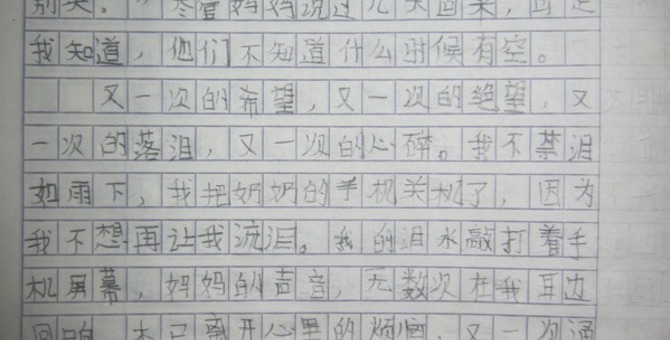 尽管妈妈说过几天回来，但是
我知道，他们不知道什么时候有空。
又一次的希望，又一次的绝望，又
一次的落泪，又一次的心碎。我不禁泪
如雨下，我把奶奶的手机关机了，因为
我不想再让我流泪。我的泪水敲打着手
机屏幕，妈妈的声音，无数次在我耳边
离开心里的烦恼，又一次通